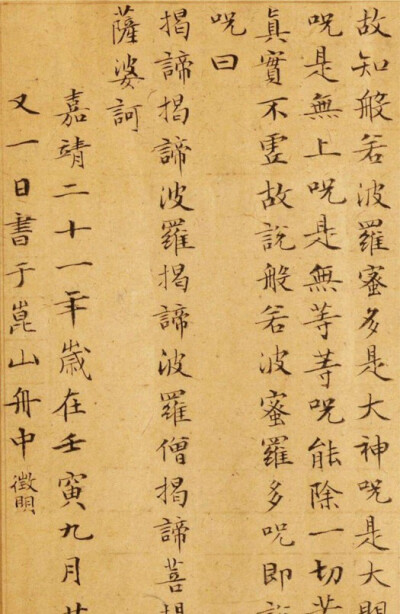 故知般若波羅蜜多是大神呪是大明
呪是無上呪是無等等呪能除一切苦
眞實不虛故說般若波蜜羅多呪即說
呪曰
揭諦揭諦波羅揭諦波羅僧揭諦菩提
薩婆訶
嘉靖二十一年歲在壬寅九月廿
又一日書于崑山舟中 徵明